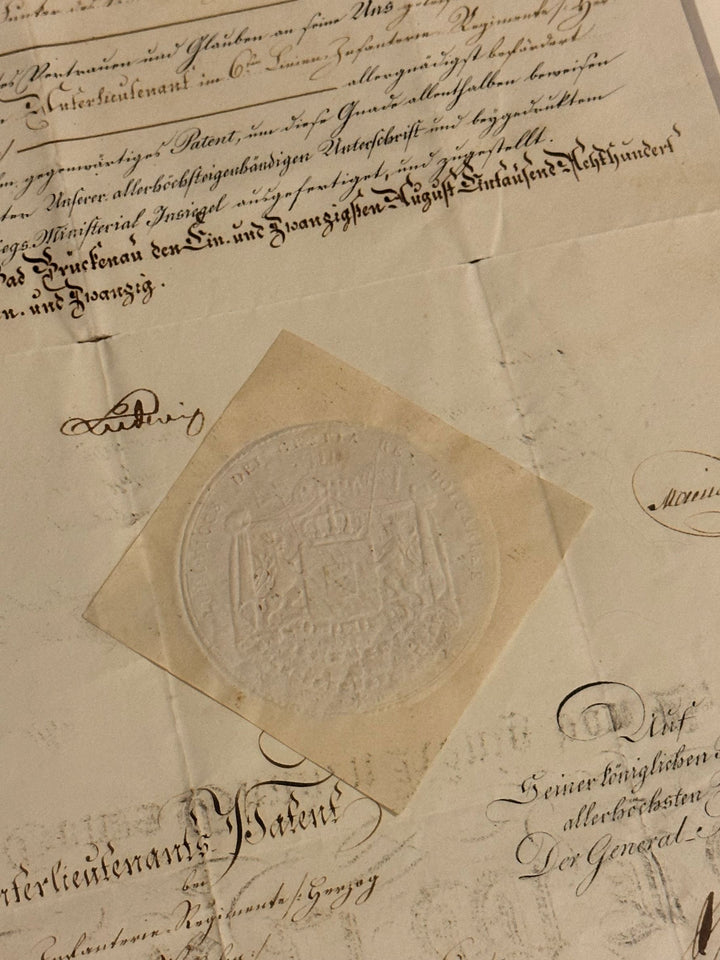 Junker
es Vertrauen und Glauben an seine Uns
Unterlieutenant im 6ten Linien-Infanterie-Regimente /: Her
allergnädigst befördert
gegenwärtiges Patent, um diese Gnade allenthalben beweisen
ter Unserer allerhöchsteigenhändigen Unterschrift und beygedruktem
egs-Ministerial Insiegel ausgefertiget, und zugestellt.
Bad Brückenau den Ein und Zwanzigsten August Eintausend Achthundert
n und Zwanzig.
Ludwig
LUDOVICUS DEI GRATIA REX
Auf
Seiner königlichen
allerhöchsten
Der General-
nterlieutenants-Patent
bei
Infanterie-Regimente /: Herzog